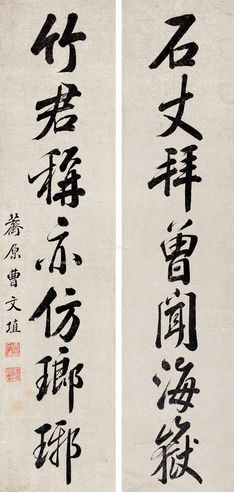 石丈拜曾聞海嶽
竹君稱亦仿瑯琊
薺原曹文埴